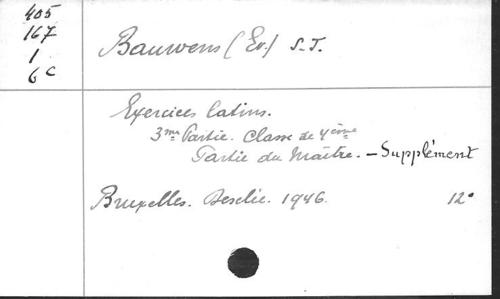 405
167
1
6c
Bauwens (Ev.) S.J.
Exercices latins.
3me Partie. Classe de 4ème
Partie du Maître. – Supplément
Bruxelles. Desclée. 1946. 12°